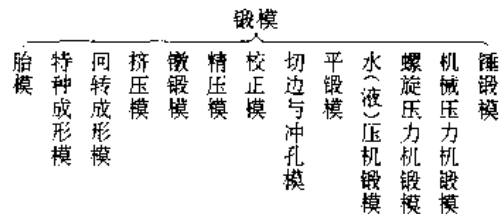 锻模
胎模
特种成形模
回转成形模
挤压模
镦锻模
精压模
校正模
切边与冲孔模
平锻模
水(液)压机锻模
螺旋压力机锻模
机械压力机锻模
锤锻模